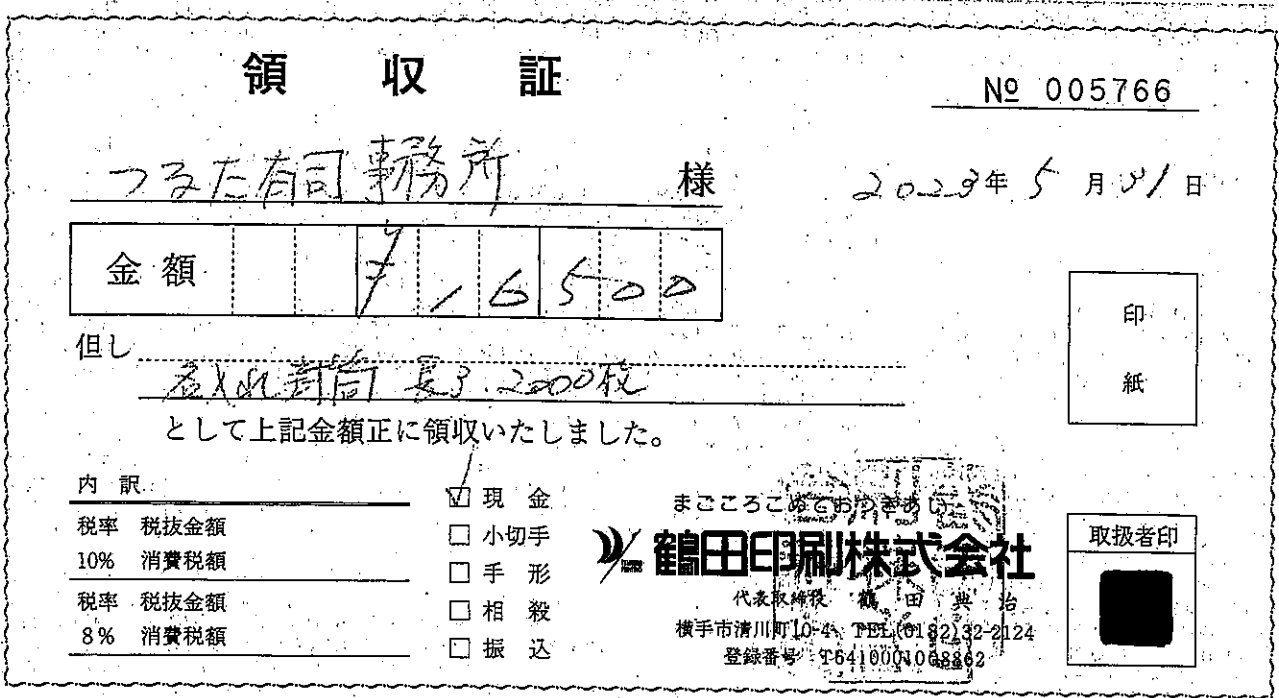 領 収 証
№ 005766
つるた有司事務所 様
2023年 5 月 31 日
金 額 ¥16500
但し
名入れ封筒 長3. 2000枚
として上記金額正に領収いたしました。
印
紙
内 訳
税率 税抜金額
10% 消費税額
税率 税抜金額
8% 消費税額
☑ 現 金
□ 小切手
□ 手 形
□ 相 殺
□ 振 込
まごころこめておつきあい
鶴田印刷株式会社
代表取締役 鶴 田 典 治
横手市清川町10-4 TEL(0182)32-2124
登録番号 T6410001008862
取扱者印